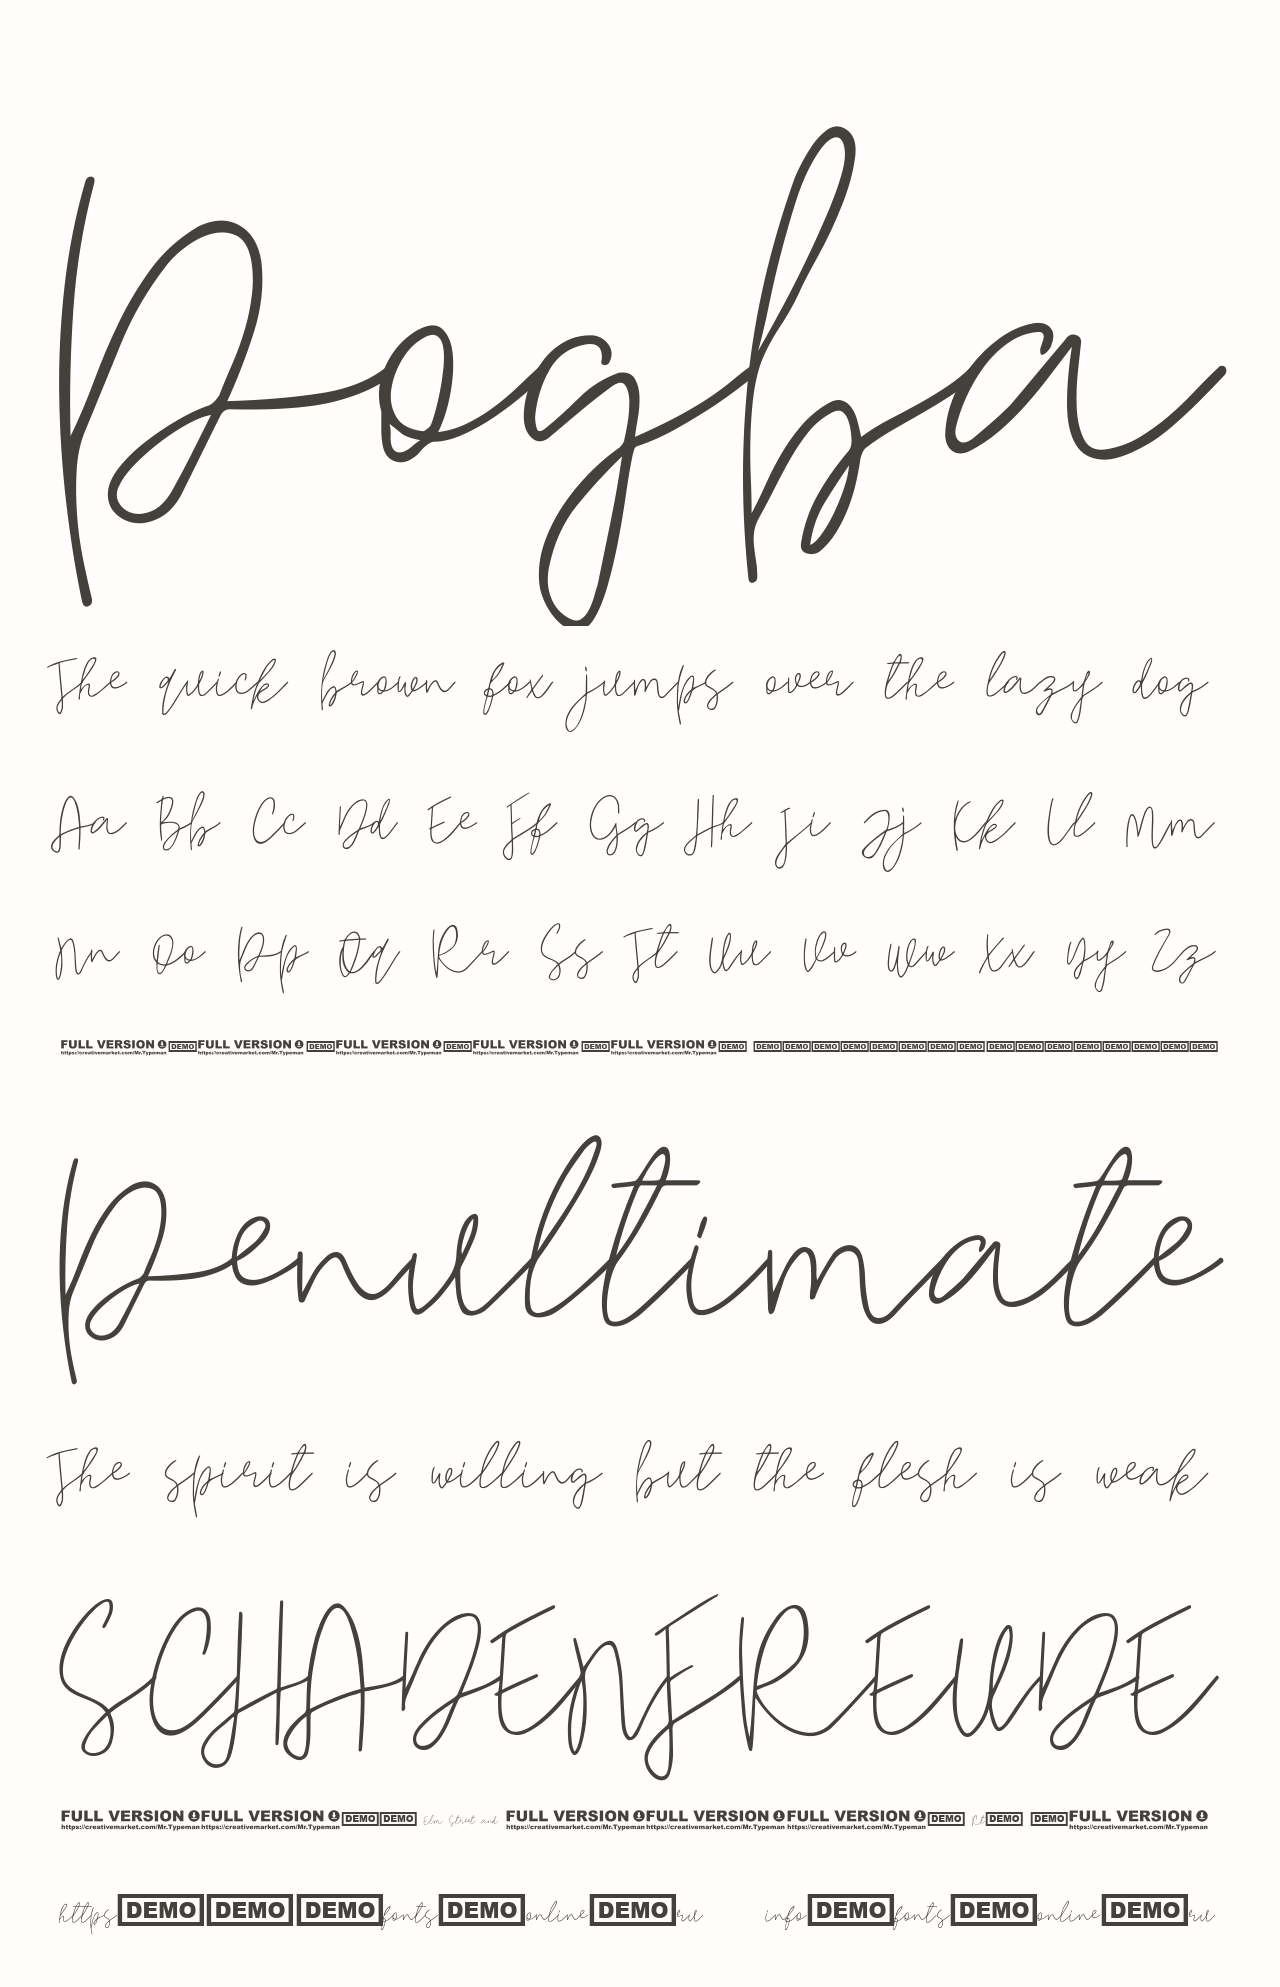 Pogba
The quick brown fox jumps over the lazy dog
Aa Bb Cc Dd Ee Ff Gg Hh Ii Jj Kk Ll Mm
Nn Oo Pp Qq Rr Ss Tt Uu Vv Ww Xx Yy Zz
FULL VERSION https://creativemarket.com/Mr.Typeman DEMO FULL VERSION https://creativemarket.com/Mr.Typeman DEMO FULL VERSION https://creativemarket.com/Mr.Typeman DEMO FULL VERSION https://creativemarket.com/Mr.Typeman DEMO FULL VERSION https://creativemarket.com/Mr.Typeman DEMO DEMO DEMO DEMO DEMO DEMO DEMO DEMO DEMO DEMO DEMO DEMO DEMO DEMO DEMO DEMO DEMO
Penultimate
The spirit is willing but the flesh is weak
SCHADENFREUDE
FULL VERSION https://creativemarket.com/Mr.Typeman FULL VERSION https://creativemarket.com/Mr.Typeman DEMO DEMO Elm Street and FULL VERSION https://creativemarket.com/Mr.Typeman FULL VERSION https://creativemarket.com/Mr.Typeman FULL VERSION https://creativemarket.com/Mr.Typeman DEMO Rt DEMO DEMO FULL VERSION https://creativemarket.com/Mr.Typeman
https DEMO DEMO DEMO fonts DEMO online DEMO ru info DEMO fonts DEMO online DEMO ru